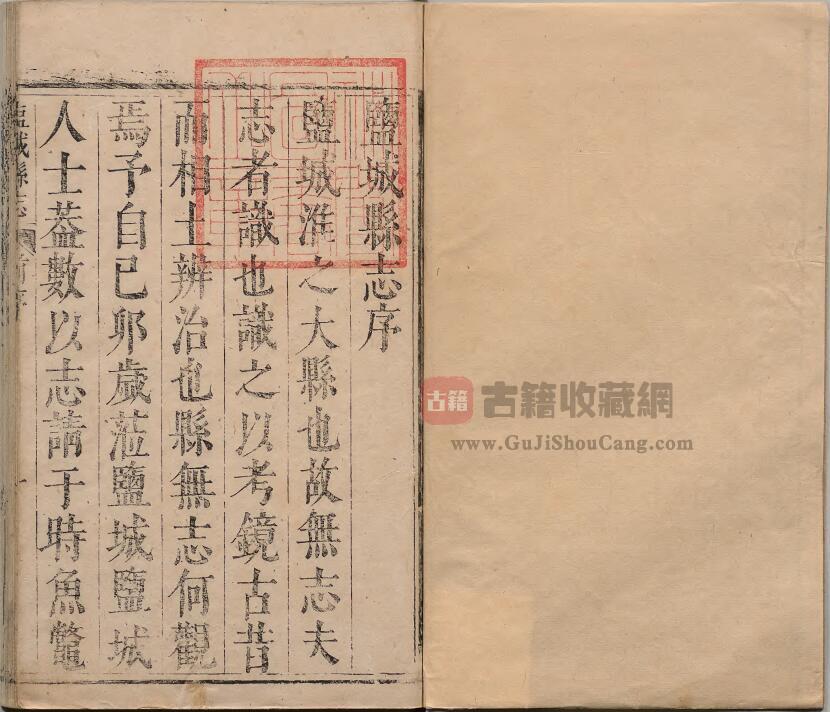 鹽城縣志序
鹽城淮之大縣也故無志夫
志者識也識之以考鏡古昔
而相土辨治也縣無志何觀
焉予自己卯歲蒞鹽城鹽城
人士葢數以志請于時魚鼈
鹽城縣志
序
一
古籍
古籍收藏網
www.GuJiShouCang.com